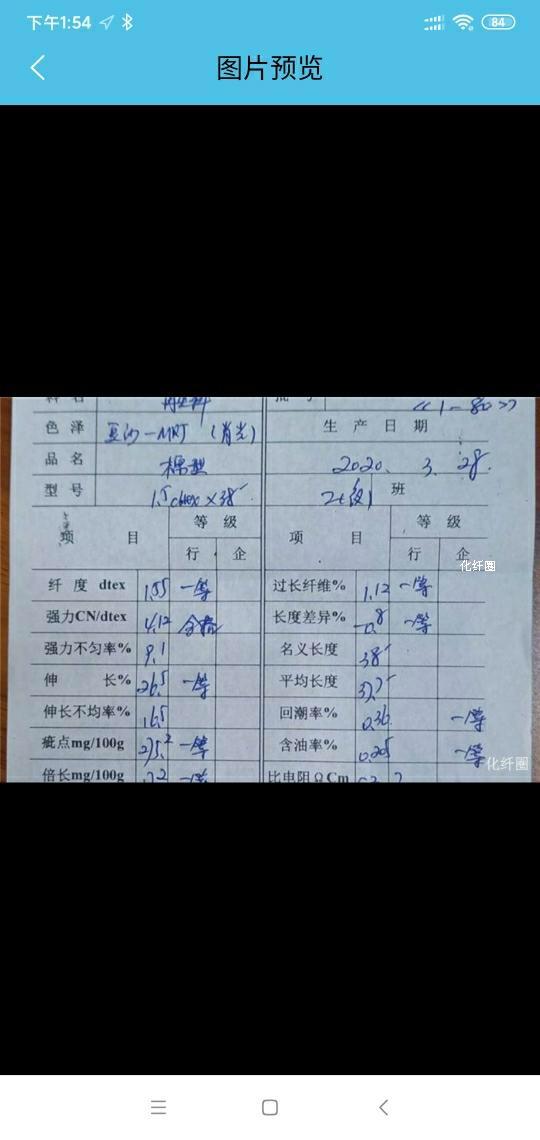 下午1:54
84
图片预览
<<1-80>>
色泽 豆沙-MRJ (肖光) 生产日期
品名 棉型 2020. 3. 28.
型号 1.5dtex×38 班
项 目 等级 项 目 等级
行 企 行 企
化纤圈
纤度dtex 1.55 一等 过长纤维% 1.12 一等
强力CN/dtex 4.12 合格 长度差异% -0.8 一等
强力不匀率% 9.1 名义长度 38
伸 长% 26.5 一等 平均长度 37.7
伸长不均率% 16.5 回潮率% 0.36 一等
疵点mg/100g 275.2 一等 含油率% 0.205 一等
化纤圈
倍长mg/100g 一等 比电阻ΩCm